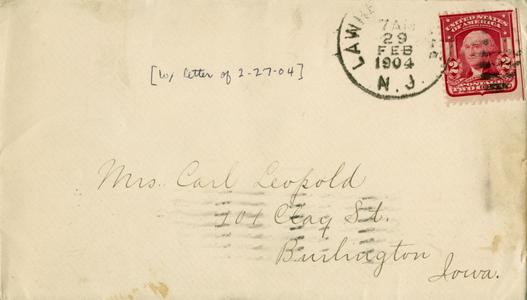 LAWRE
7 AM
29
FEB
1904
N. J.
UNITED STATES
OF AMERICA
2 2
POSTAGE
TWO
[w/ letter of 2-27-04]
Mrs. Carl Leopold
101 Clay St.
Burlington
Iowa.